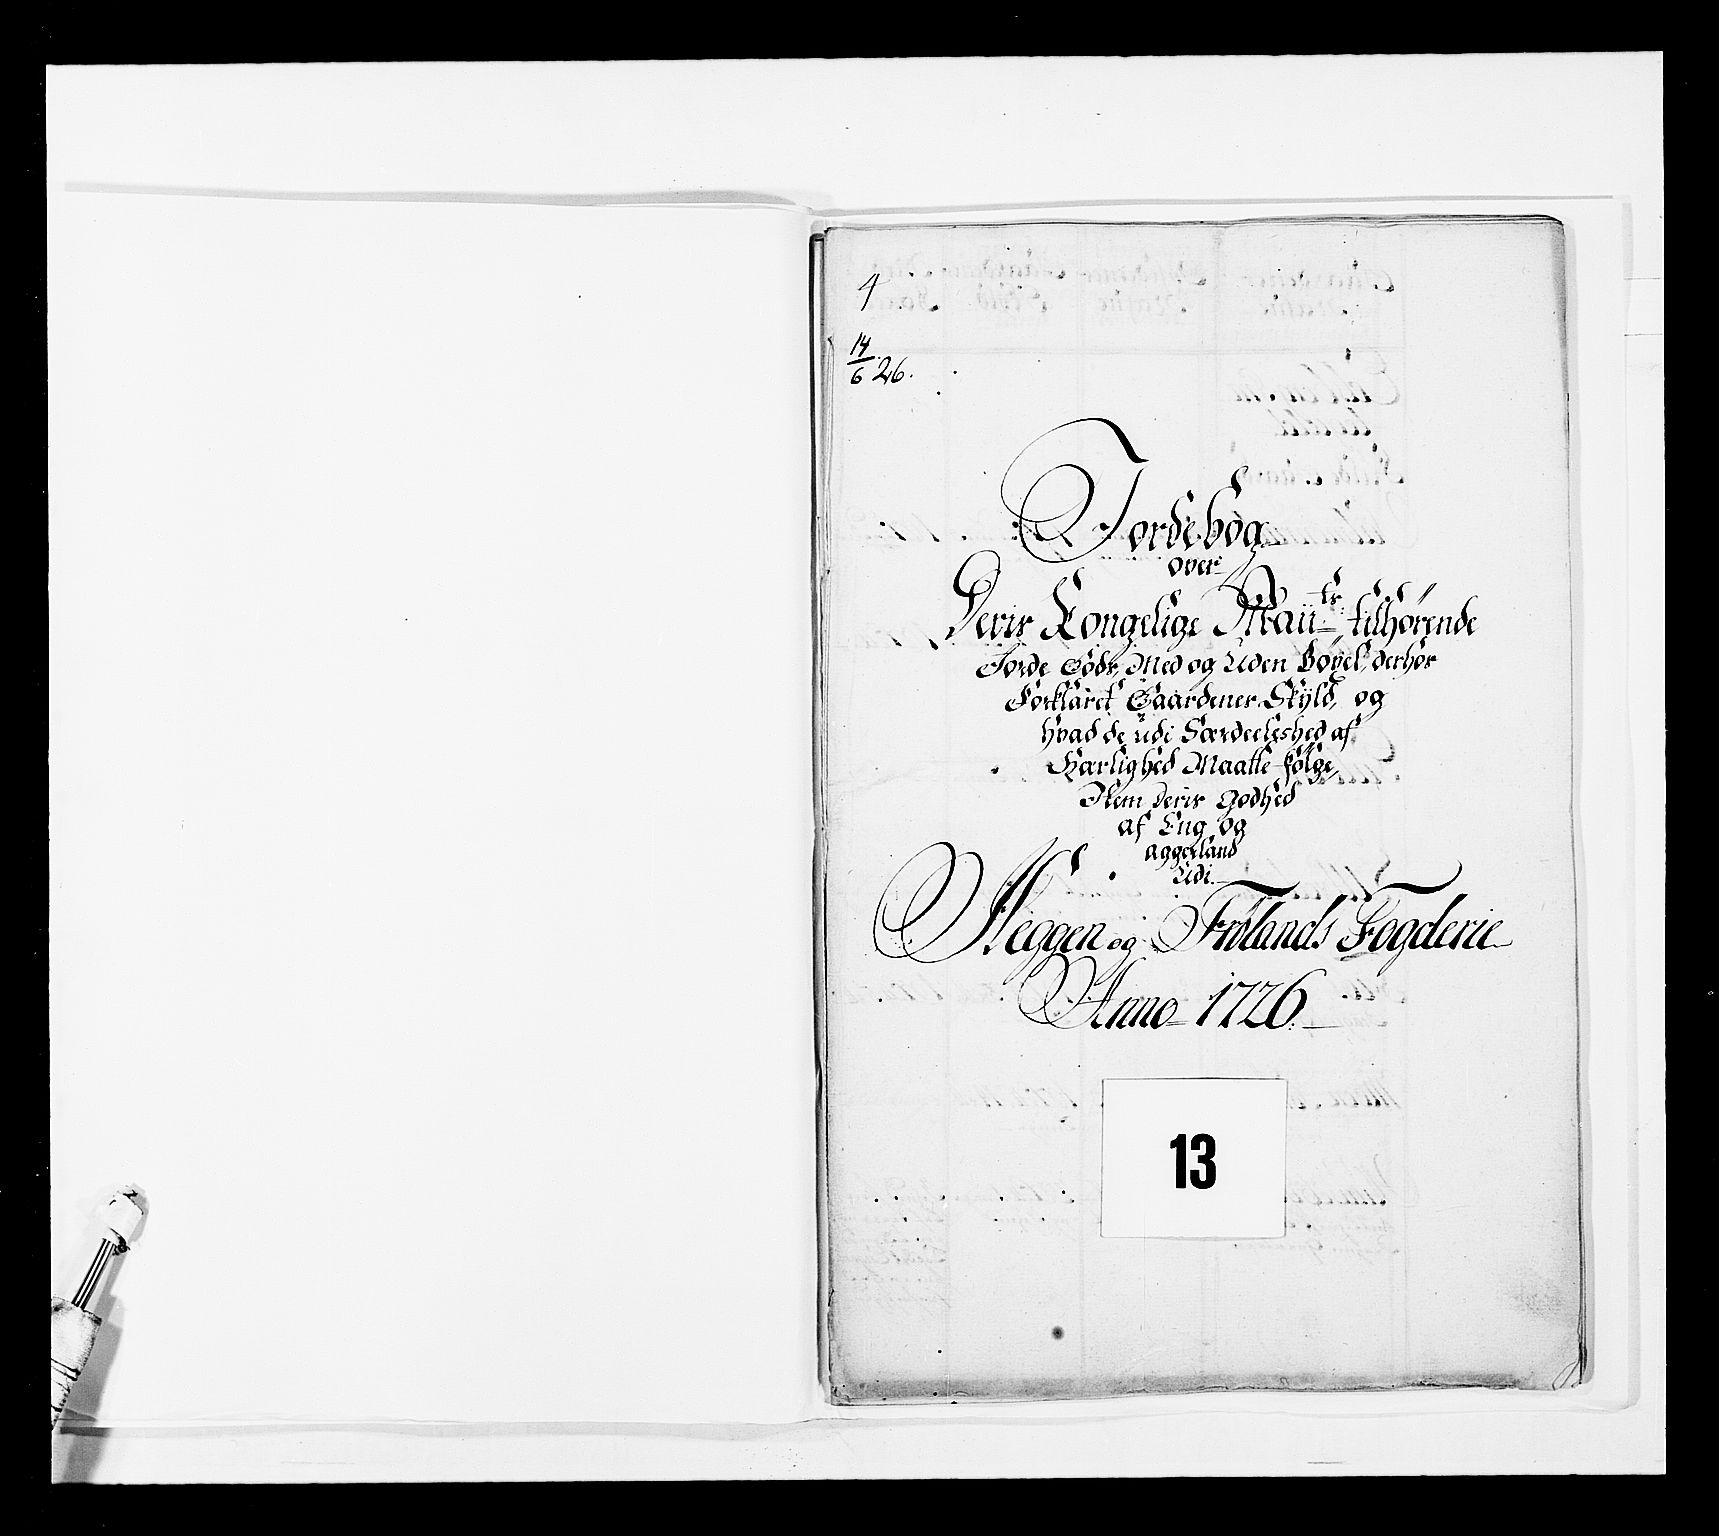 4
14/6 26.
Jordebog
over
Deris Kongelige Maiits tilhørende
Jorde Godtz, Med og Uden Bøxel, derhos
Forklaret Gaardenes Skÿld, og
hvad de udi Særdeeleshed af
Herlighed Maatte følge,
Item deris Godhed
af Eng og
aggerland
Udi
Heggen og Frølands Fogderie
Anno 1726.
13